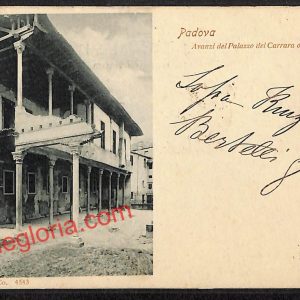 Padova
Avanzi del Palazzo dei Carrara
Bertelli
negloria.com
Co. 4583